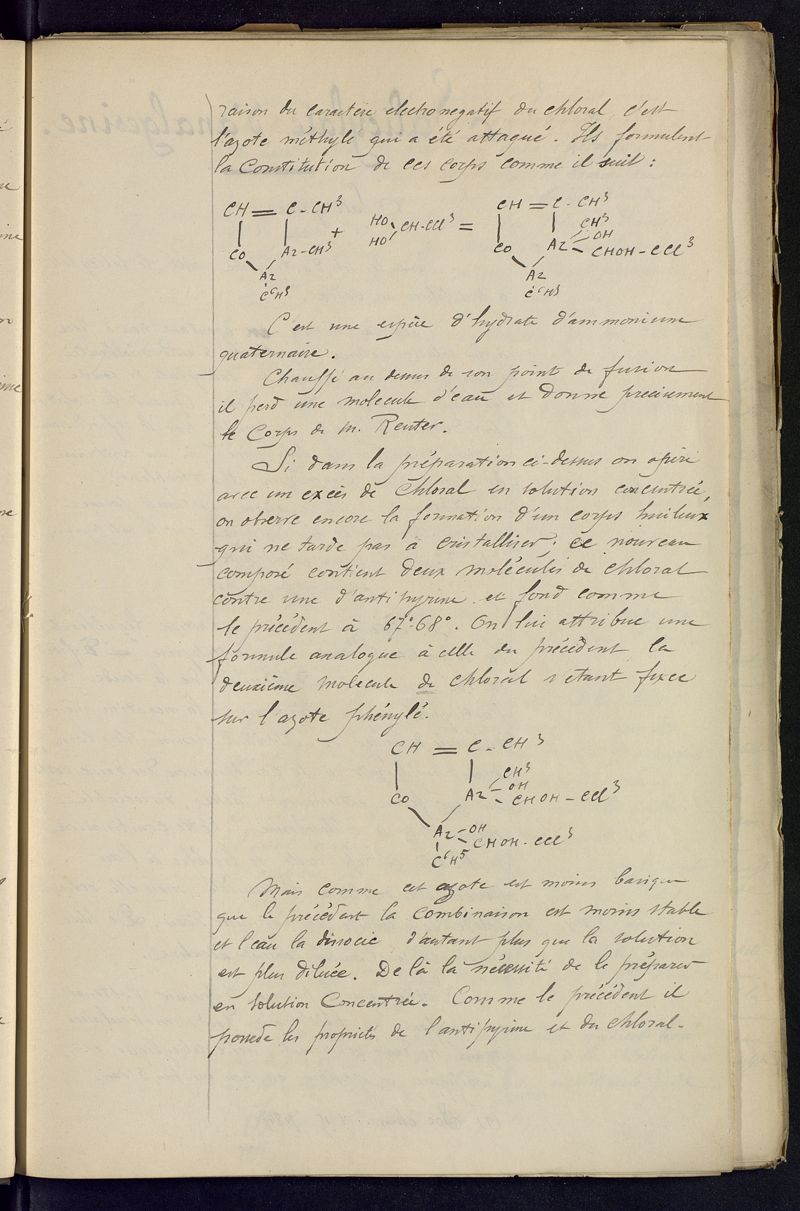 raison du caractère electronegatif du chloral, c'est
l'azote méthyle qui a été attaqué. Ils formulent
la Constitution de ces corps comme il suit :
CH = C - CH3 CH = C - CH3
CO Az - CH3 + HO HO CH - CCl3 = CO Az CH3 OH CHOH - CCl3
Az Az
C6H5 C6H5
C'est une espèce d'hydrate d'ammonium
quaternaire.
Chauffé au dessus de son point de fusion
il perd une molecule d'eau et donne precisement
le Corps de M. Reuter.
Si dans la préparation ci-dessus on opère
avec un excès de Chloral en solution concentrée,
on observe encore la formation d'un corps huileux
qui ne tarde pas à cristalliser ; ce nouveau
composé contient deux molécules de chloral
contre une d'antipyrine et fond comme
le précédent à 67°-68°. On lui attribue une
formule analogue à celle du précédent, la
deuxième molecule de chloral s'etant fixee
sur l'azote phénylé.
CH = C - CH3
CO Az CH3 OH CHOH - CCl3
Az - OH CHOH - CCl3
C6H5
Mais comme cet azote est moins basique
que le précédent la combinaison est moins stable
et l'eau la dissocie, d'autant plus que la solution
est plus diluée. De là la nécessité de le préparer
en solution Concentrée. Comme le précédent il
possède les proprietés de l'antipyrine et du chloral.